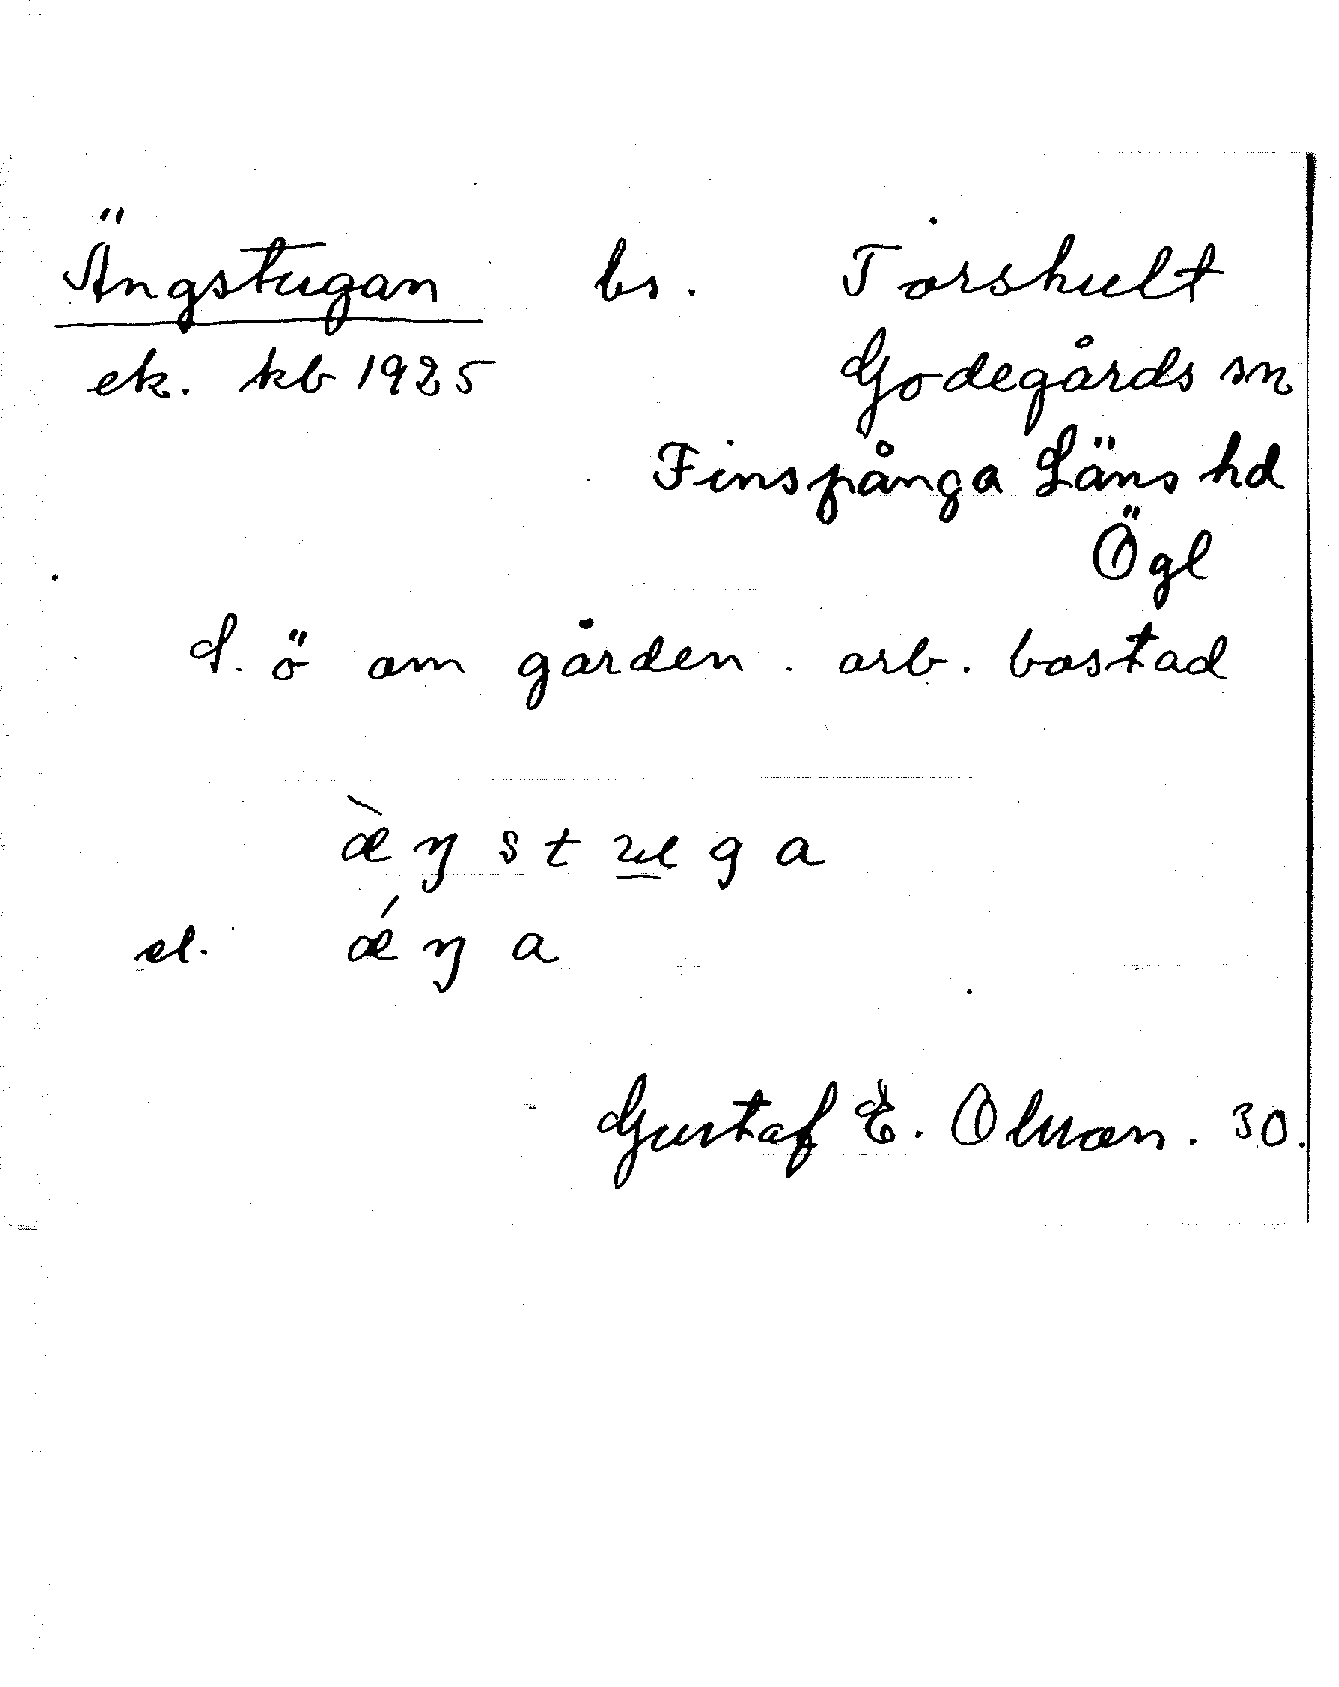 Ängstugan bs. Torshult
ek. kb 1925 Godegårds sn
Finspånga Läns hd
Ögl
S. ö om gården. arb. bostad
æ̀ŋstuga
el. ǽŋa
Gustaf E. Olsson. 30.